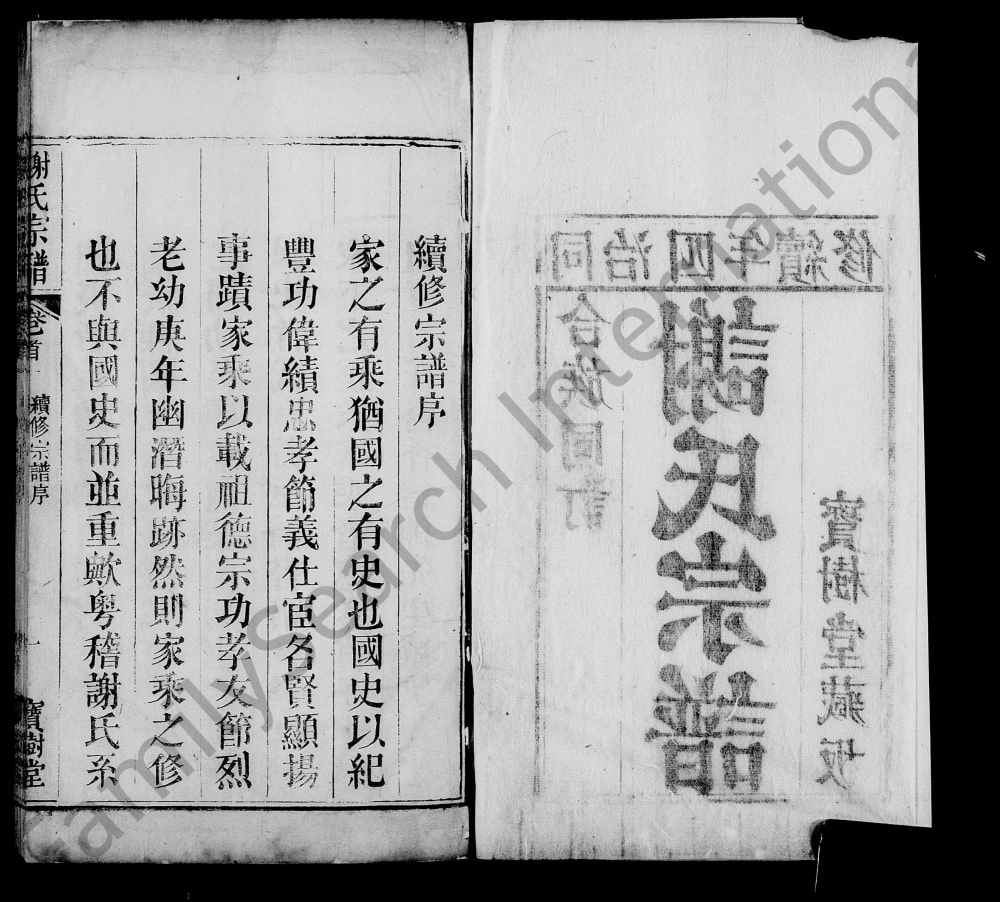 同治四年續修
合族同訂
謝氏宗譜
寶樹堂藏板
續修宗譜序
家之有乘猶國之有史也國史以紀
豐功偉績忠孝節義仕宦名賢顯揚
事蹟家乘以載祖德宗功孝友節烈
老幼庚年幽潛晦跡然則家乘之修
也不與國史而並重歟粵稽謝氏系
謝氏宗譜
卷首
續修宗譜序
一
寶樹堂
FamilySearch International